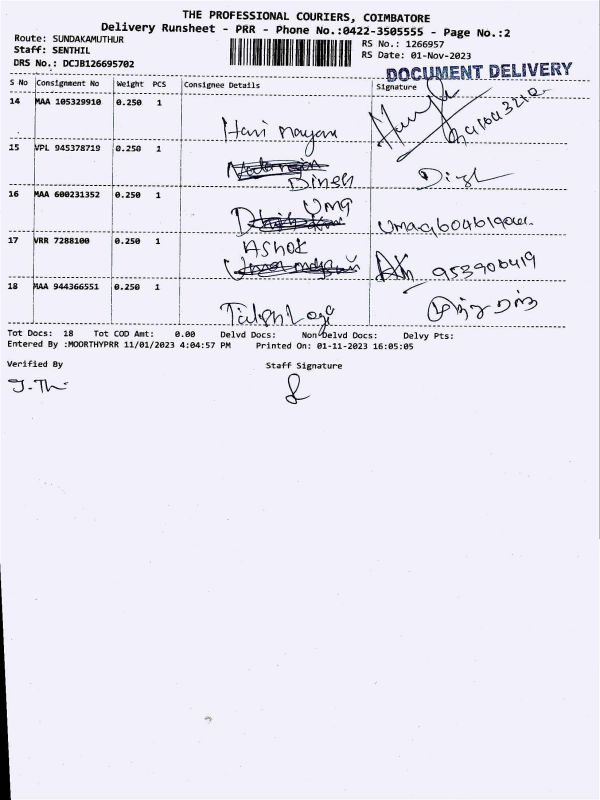 THE PROFESSIONAL COURIERS, COIMBATORE
Delivery Runsheet - PRR - Phone No.:0422-3505555 - Page No.:2
Route: SUNDAKAMUTHUR
RS No.: 1266957
Staff: SENTHIL
RS Date: 01-Nov-2023
DRS No.: DCJB126695702
DOCUMENT DELIVERY
S No Consignment No Weight PCS Consignee Details Signature
14 MAA 105329910 0.250 1
Hari
15 VPL 945378719 0.250 1
Dinesh
16 MAA 600231352 0.250 1
Uma
17 VRR 7288100 0.250 1
Ashok
18 MAA 944366551 0.250 1
Tot Docs: 18 Tot COD Amt: 0.00 Delvd Docs: Non Delvd Docs: Delvy Pts:
Entered By :MOORTHYPRR 11/01/2023 4:04:57 PM Printed On: 01-11-2023 16:05:05
Verified By Staff Signature